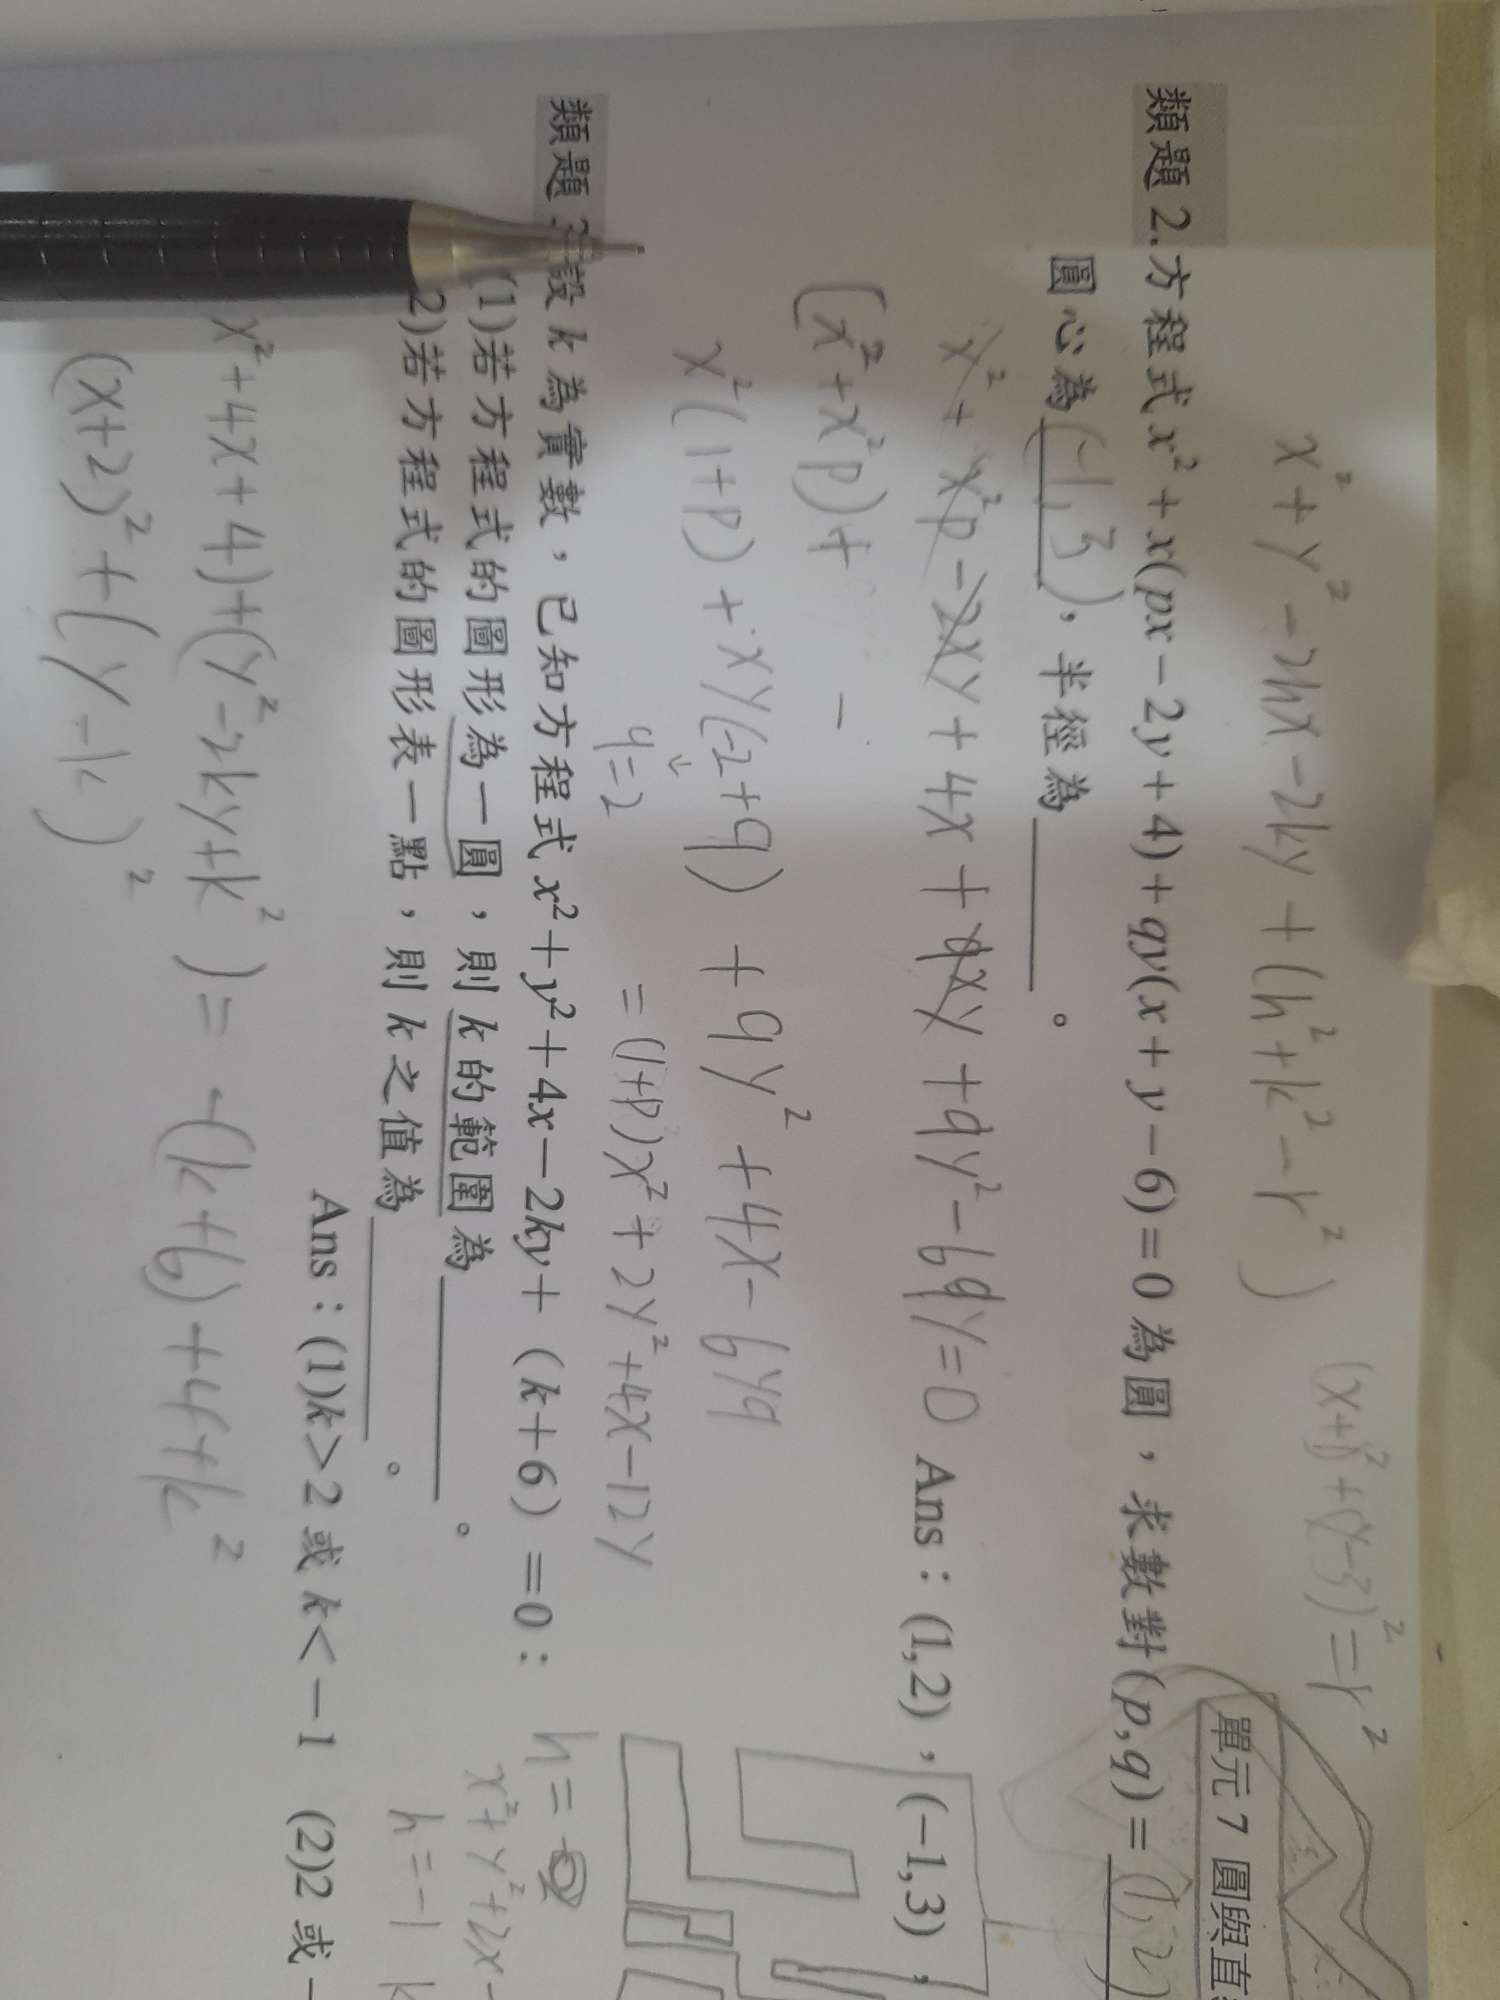 單元 7 圓與直
x² + y² - 2hx - 2ky + (h² + k² - r²)
(x+1)² + (y-3)² = r²
類題 2. 方程式 x² + x(px − 2y + 4) + qy(x + y − 6) = 0 為圓，求數對 (p, q) = (1, 2)
圓心為 (-1, 3)，半徑為 ______。
x² + x²p - 2xy + 4x + qxy + qy² - 6qy = 0
Ans：(1,2)，(−1,3)，
(x² + x²p) + -
x²(1+p) + xy(-2+q) + qy² + 4x - 6yq
q = 2
= (1+p)x² + 2y² + 4x - 12y
類題 3. 設 k 為實數，已知方程式 x² + y² + 4x − 2ky + (k + 6) = 0：
(1)若方程式的圖形為一圓，則 k 的範圍為 ______。
2)若方程式的圖形表一點，則 k 之值為 ______。
Ans：(1)k > 2 或 k < −1 (2)2 或 −
h =
x² + y² + 2x -
h = -1 k
x² + 4x + 4) + (y² - 2ky + k²) = -(k+6) + 4 + k²
(x+2)² + (y - k)²